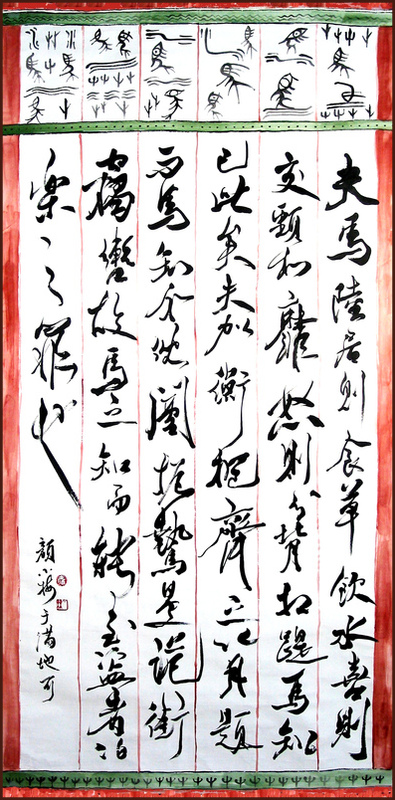 夫馬陸居則食草飲水喜則
交頸相靡怒則分背相踶馬知
已此矣夫加衡扼齊之以月題
而馬知介倪闉扼鷙曼詭銜
竊轡故馬之知而態至盜者伯
楽之罪也
顏小梅于滿地可